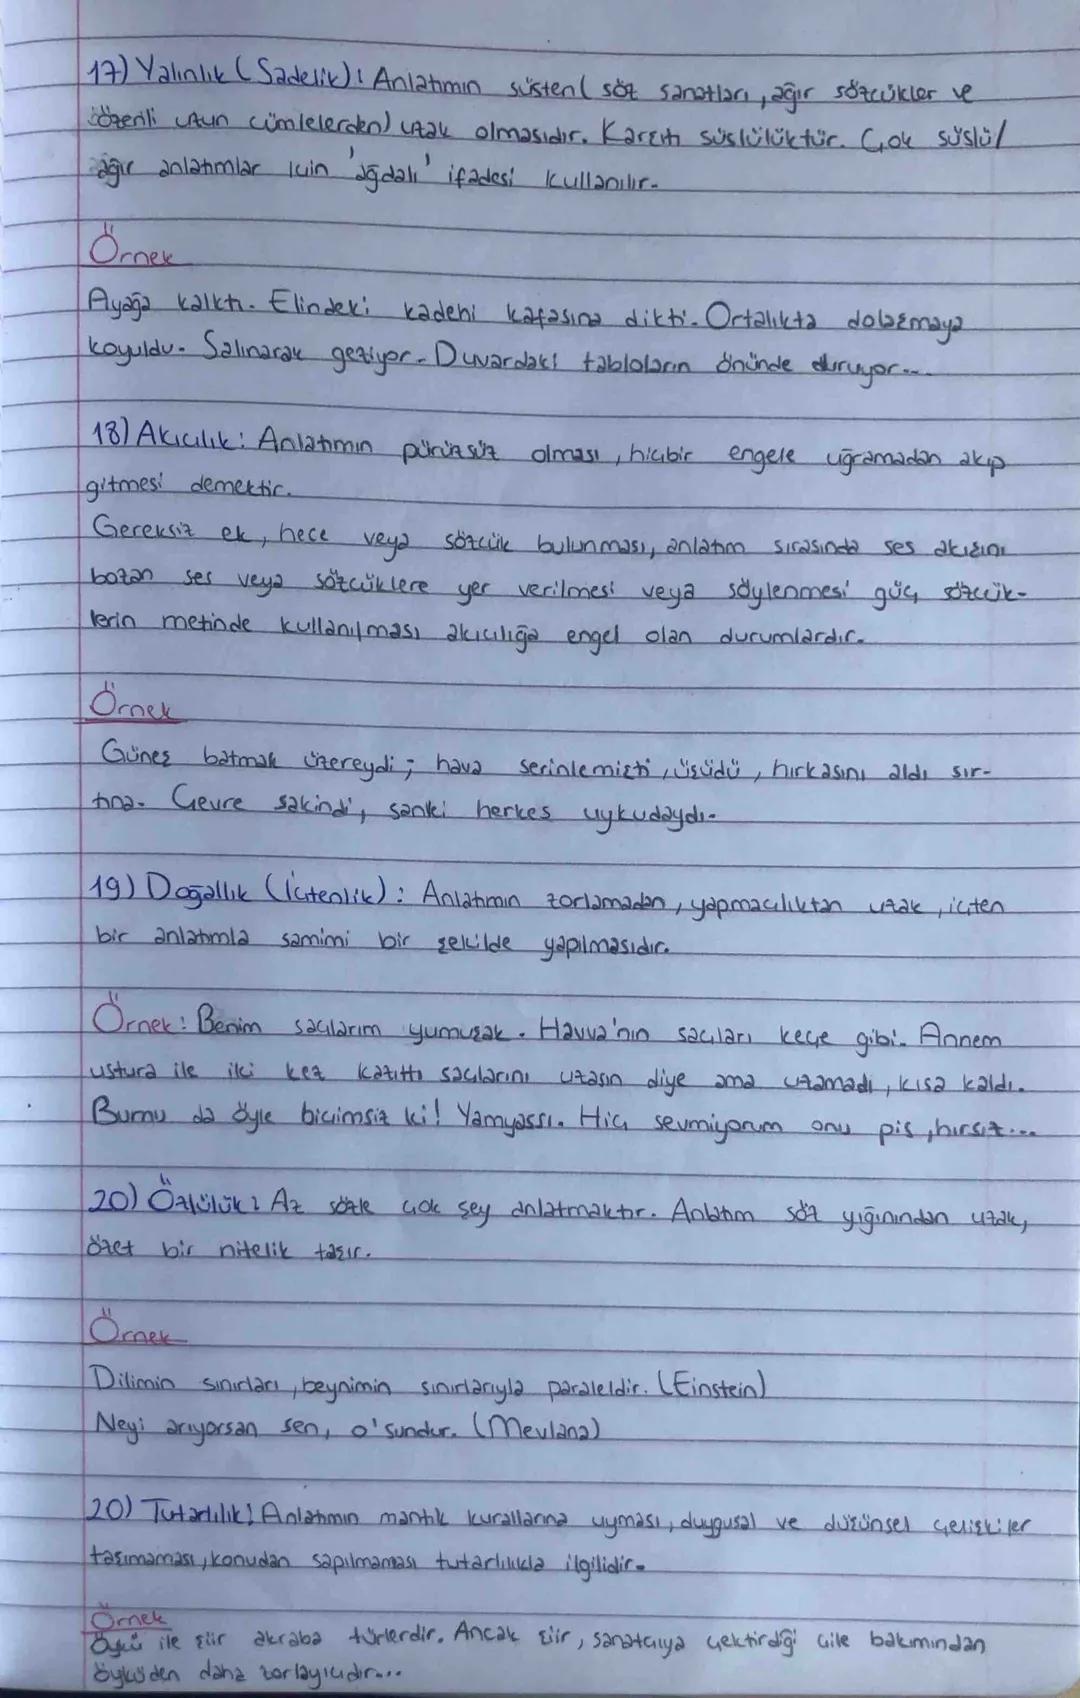 17) Yalınlık (Sadelik): Anlatımın süsten (söz sanatları, ağır sözcükler ve
özenli uzun cümlelerden) uzak olmasıdır. Karşıtı süslülüktür. Çok süslü/
ağır anlatımlar için 'ağdalı' ifadesi kullanılır.
Örnek
Ayağa kalktı. Elindeki kadehi kafasına dikti. Ortalıkta dolaşmaya
koyuldu. Salınarak geziyor. Duvardaki tabloların önünde duruyor...
18) Akıcılık: Anlatımın pürüzsüz olması, hiçbir engele uğramadan akıp
gitmesi demektir.
Gereksiz ek, hece veya sözcük bulunması, anlatım sırasında ses akışını
bozan ses veya sözcüklere yer verilmesi veya söylenmesi güç sözcük-
lerin metinde kullanılması akıcılığa engel olan durumlardır.
Örnek
Güneş batmak üzereydi; hava serinlemişti, üşüdü, hırkasını aldı sır-
tına. Çevre sakindi, sanki herkes uykudaydı.
19) Doğallık (İçtenlik): Anlatımın zorlamadan, yapmacılıktan uzak, içten
bir anlatımla samimi bir şekilde yapılmasıdır.
Örnek: Benim saçlarım yumuşak. Havva'nın saçları keçe gibi. Annem
ustura ile iki kez kazıttı saçlarını uzasın diye ama uzamadı, kısa kaldı.
Burnu da öyle biçimsiz ki! Yamyassı. Hiç sevmiyorum onu pis, hırsız...
20) Özlülük: Az sözle çok şey anlatmaktır. Anlatım söz yığınından uzak,
özet bir nitelik taşır.
Örnek
Dilimin sınırları, beynimin sınırlarıyla paraleldir. (Einstein)
Neyi arıyorsan sen, o'sundur. (Mevlana)
20) Tutarlılık: Anlatımın mantık kurallarına uyması, duygusal ve düşünsel çelişkiler
taşımaması, konudan sapılmaması tutarlılıkla ilgilidir.
Örnek
Öykü ile şiir akraba türlerdir. Ancak şiir, sanatçıya çektirdiği çile bakımından
öyküden daha zorlayıcıdır...